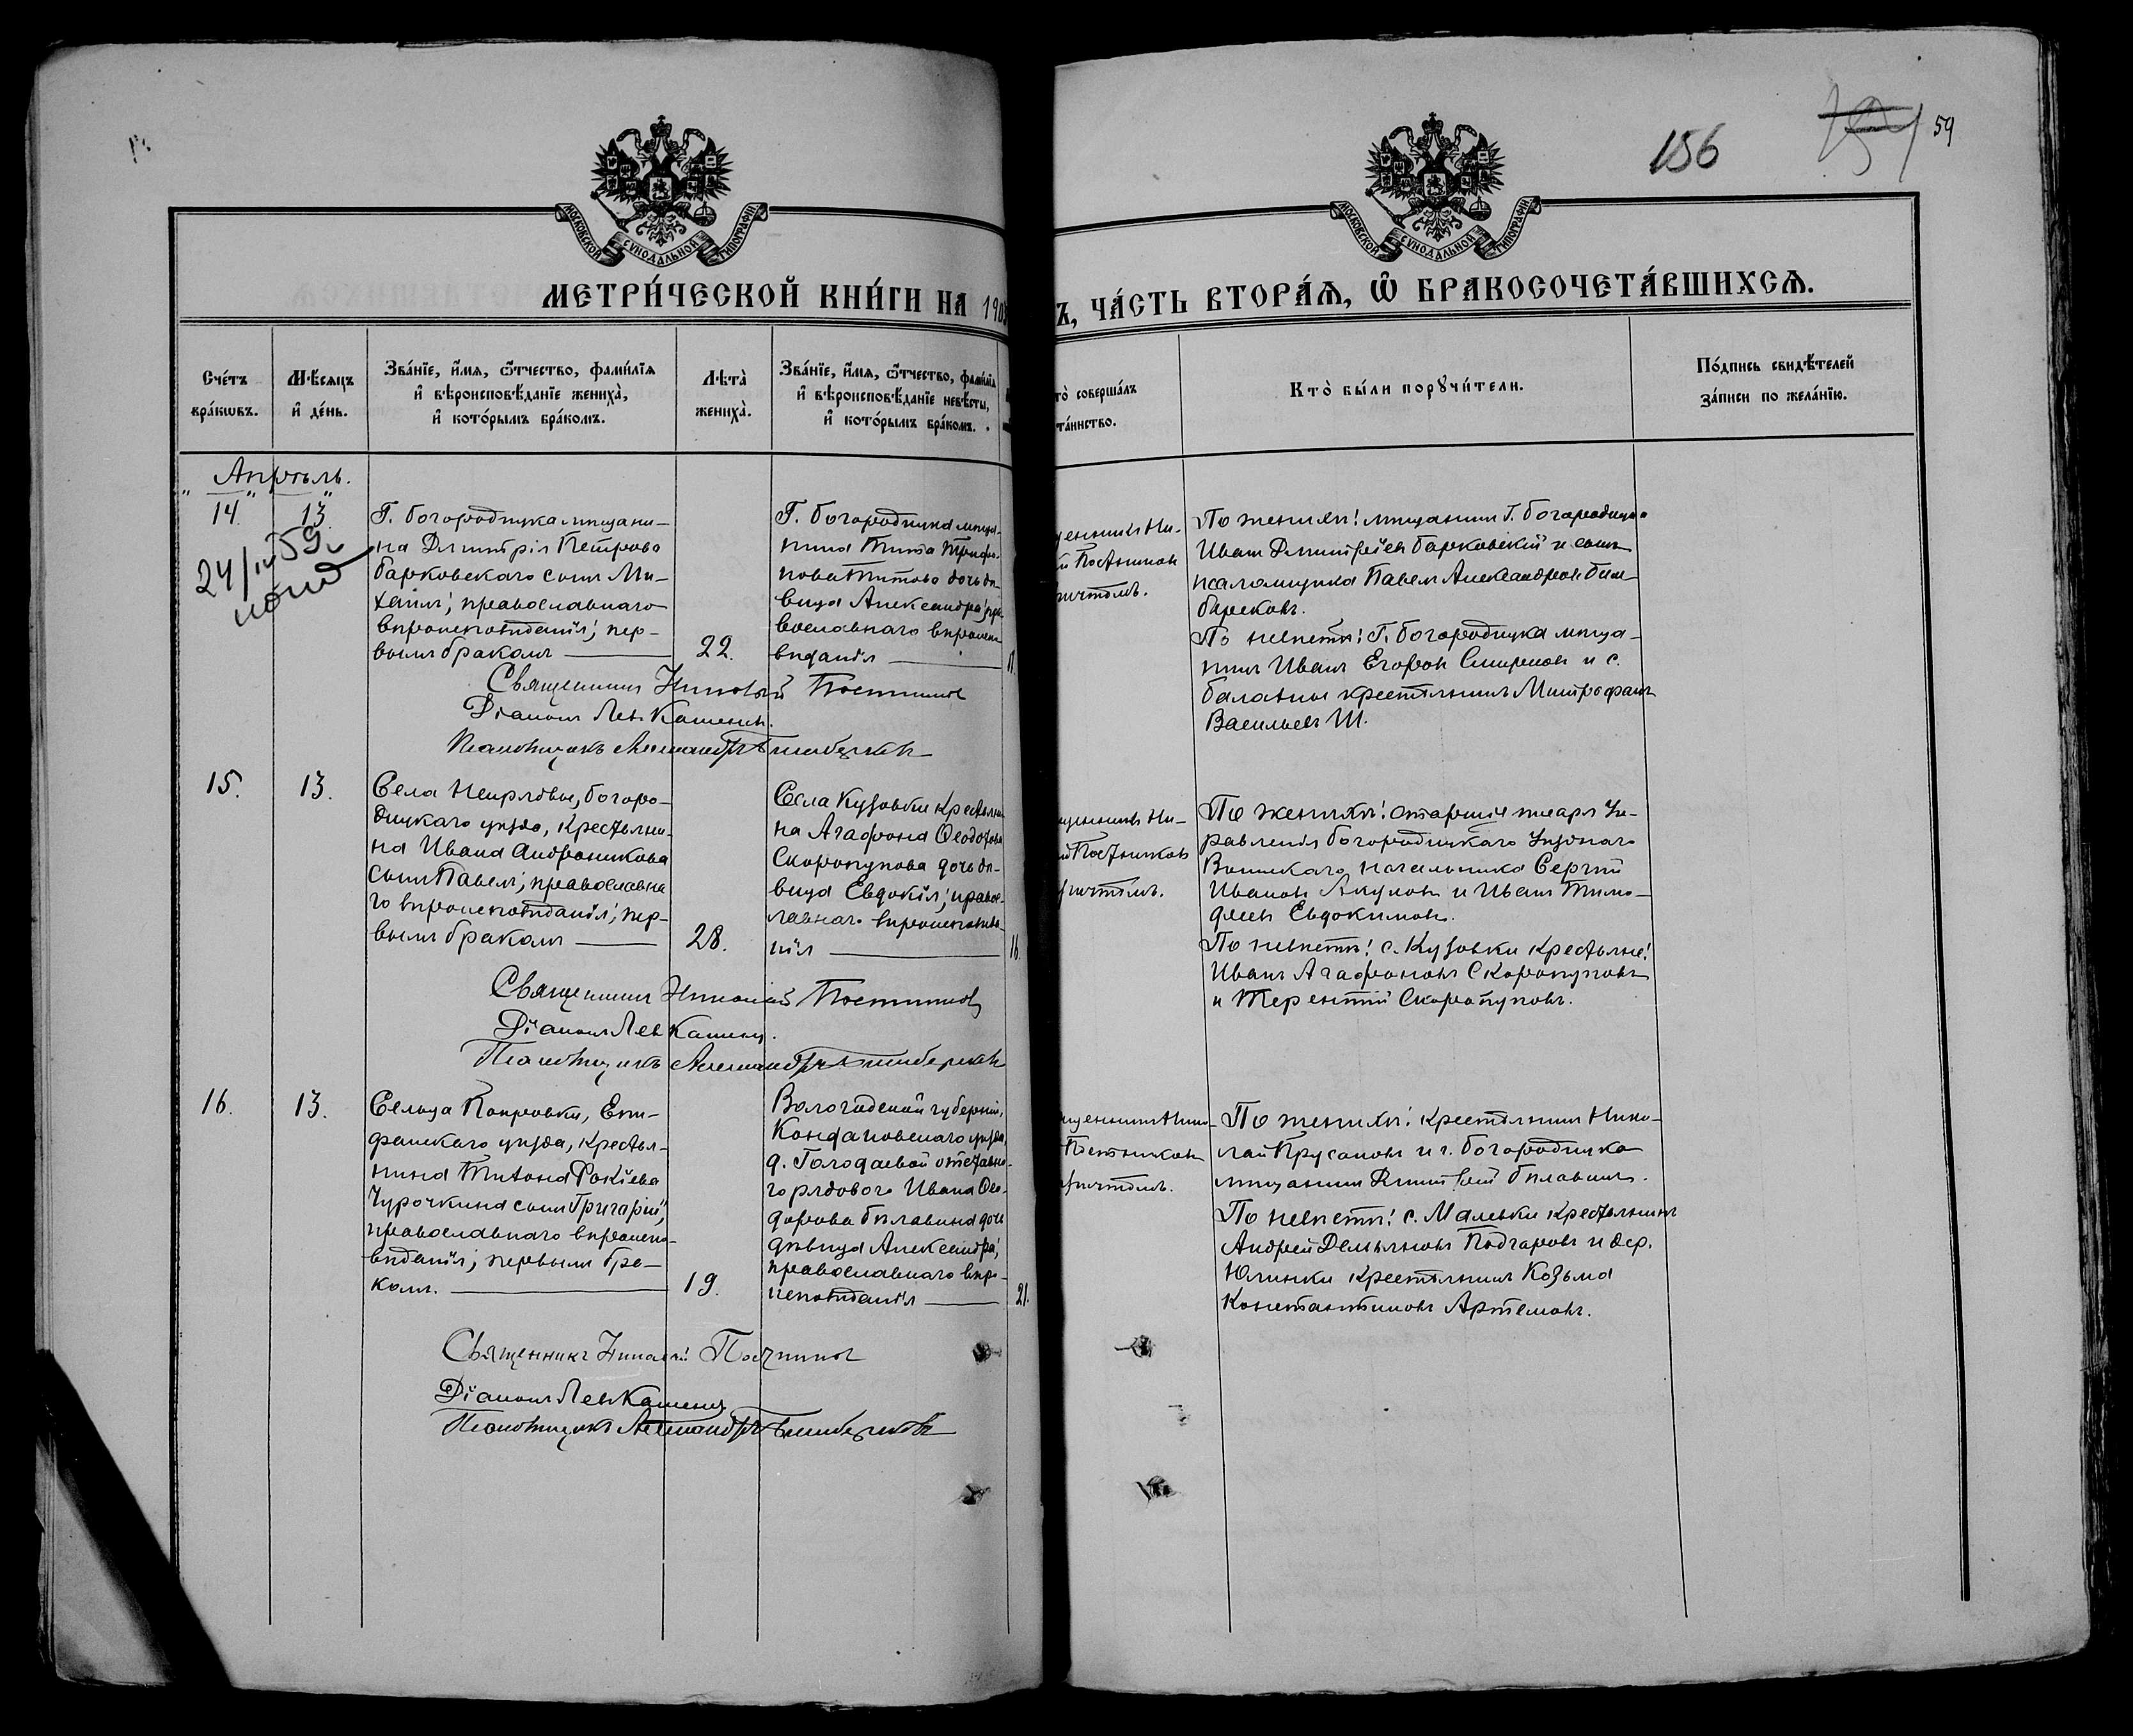 156
59
МОСКОВСКОЙ СѴНОДАЛЬНОЙ ТИПОГРАФІИ
МОСКОВСКОЙ СѴНОДАЛЬНОЙ ТИПОГРАФІИ
МЕТРИ́ЧЕСКОЙ КНИ́ГИ НА 190
Ъ, ЧА́СТЬ ВТОРА́Ѧ, Ѿ БРАКОСОЧЕТА́ВШИХСѦ.
Сче́тъ бра́кѡвъ.
Мѣ́сяцъ и҆ де́нь.
Зва́нїе, и҆́мѧ, ѻ҆́тчество, фами́лїѧ
и҆ вѣроисповѣ́данїе жениха̀,
и҆ кото́рымъ бра́комъ.
Лѣта̀ жениха̀.
Зва́нїе, и҆́мѧ, ѻ҆́тчество, фами́лїѧ
и҆ вѣроисповѣ́данїе невѣ́сты,
и҆ кото́рымъ бра́комъ.
то̀ соверша́лъ
та́инство.
Кто̀ бы́ли порꙋчи́тели.
По́дпись свидѣ́телей
за́писи по жела́нїю.
Апрѣль.
14. 13.
Г. Богородицка мѣщани-
на Димитрія Петрова
Барковскаго сынъ Ми-
хаилъ, православнаго
вѣроисповѣданія, пер-
вымъ бракомъ
22.
Г. Богородицка мѣща-
нина Тита
Титова дочь дѣ-
вица Александра, пра-
вославнаго вѣроиспо-
вѣданія
щенникъ Ни-
й Постников
По женихѣ: мѣщанинъ Г. Богородицка
Иванъ Димитріевъ Барковскій и сынъ
псаломщика Павелъ Александровъ Бим-
бирековъ.
По невѣстѣ: Г. Богородицка мѣща-
нинъ Иванъ Егоровъ Смирновъ и с.
Балахны крестьянинъ Митрофанъ
Васильевъ Ш.
Священникъ Николай Постников
Діаконъ Левъ Кашеинъ.
Псаломщикъ Александръ
15. 13.
Села Непрядвы, Богоро-
дицкаго уѣзда, крестьяни-
на Ивана Андроникова
сынъ Павелъ, православна
го вѣроисповѣданія, пер-
вымъ бракомъ
28.
Села Кузовки крестьяни
на Агафона Ѳеодотова
Скоропупова дочь дѣ-
вица Евдокія, правос-
лавнаго вѣроисповѣда-
нія
16.
щенникъ Ни-
й Постников
По женихѣ: старшій писарь Уп-
равленія Богородицкаго Уѣзднаго
Воинскаго начальника Сергій
Ивановъ Акуловъ и Иванъ Тимо-
феевъ Евдокимовъ.
По невѣстѣ: с. Кузовки крестьяне:
Иванъ Агафоновъ Скоропуповъ
и Терентій Скоропуповъ.
Священникъ Николай Постников
Діаконъ Левъ Кашеинъ.
Псаломщикъ Александръ
16. 13.
Сельца Покровки, Епи-
фанскаго уѣзда, крестья-
нина Титона Фокіева
Чурочкина сынъ Григорій,
православнаго вѣроиспо-
вѣданія, первымъ бра-
комъ.
19.
Вологодской губерніи,
уѣзда,
д. Голодаевой отставно-
го рядового Ивана Ѳео-
дорова Билавина дочь
дѣвица Александра,
православнаго вѣро-
исповѣданія
21.
щенникъ Нико-
Постников
По женихѣ: крестьянинъ Нико-
лай Прусаковъ и г. Богородицка
мѣщанинъ Димитрій Билавинъ.
По невѣстѣ: с. Малевки крестьянинъ
Андрей Демьяновъ Подчаровъ и дер.
Юлинки крестьянинъ Козьма
Константиновъ Артемовъ.
Священникъ Николай Постников
Діаконъ Левъ Кашеинъ
Псаломщикъ Александръ